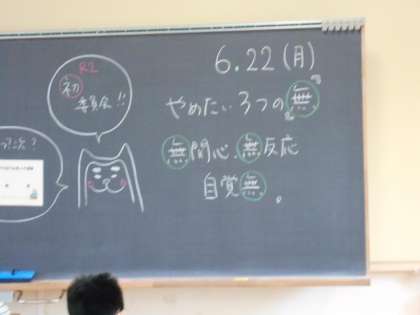 6.22(月)
やめたい3つの無
無関心、無反応
自覚無。
R2
初
委員会!!